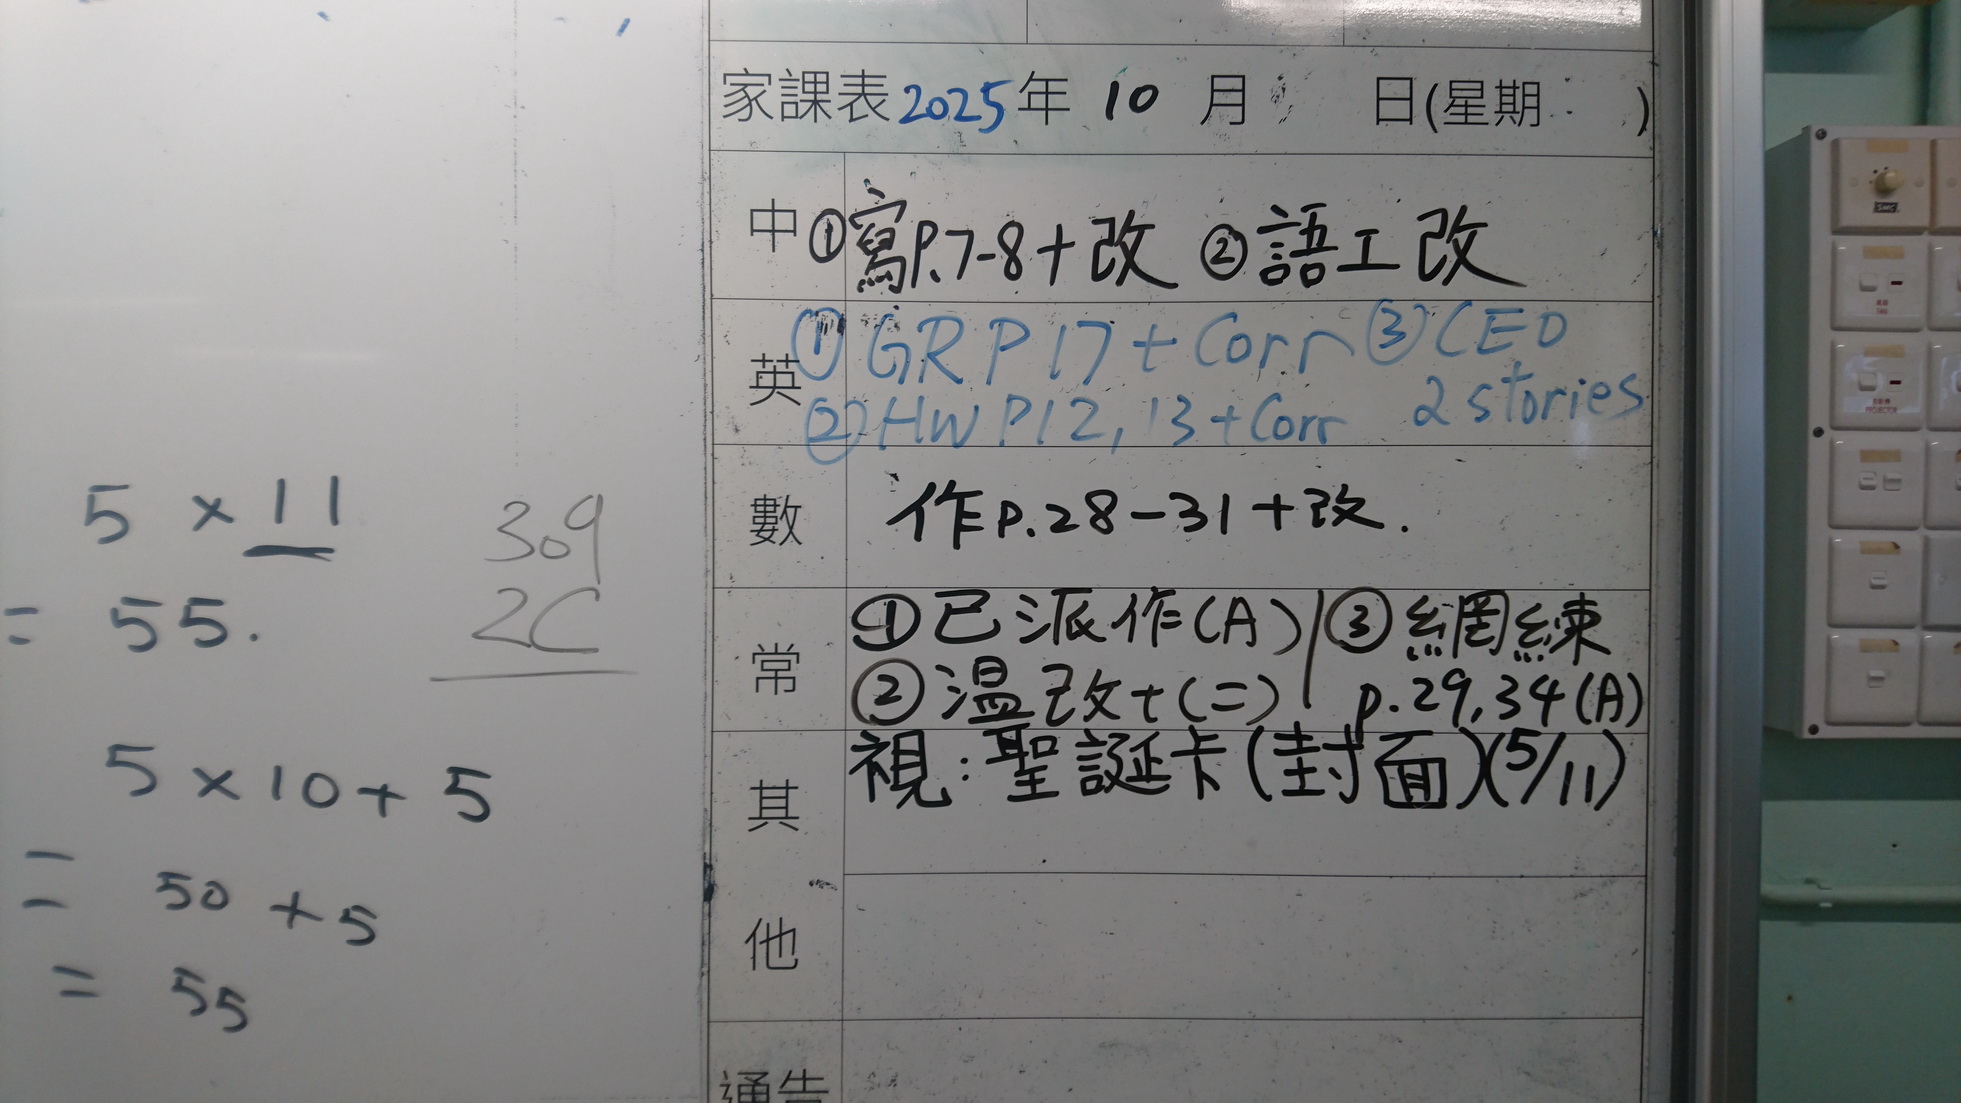 5 × 11
= 55.
5 × 10 + 5
= 50 + 5
= 55
309
2C
家課表2025年 10 月 日(星期 )
中 ①寫P.7-8+改 ②語工改
英 ①GR P17+Corr ③CEO
②HW P12,13+Corr 2 stories
數 作p.28-31+改.
常 ①已派作(A) ③網練
②溫改+(二) p.29,34(A)
其他 視:聖誕卡(封面)(5/11)
通告